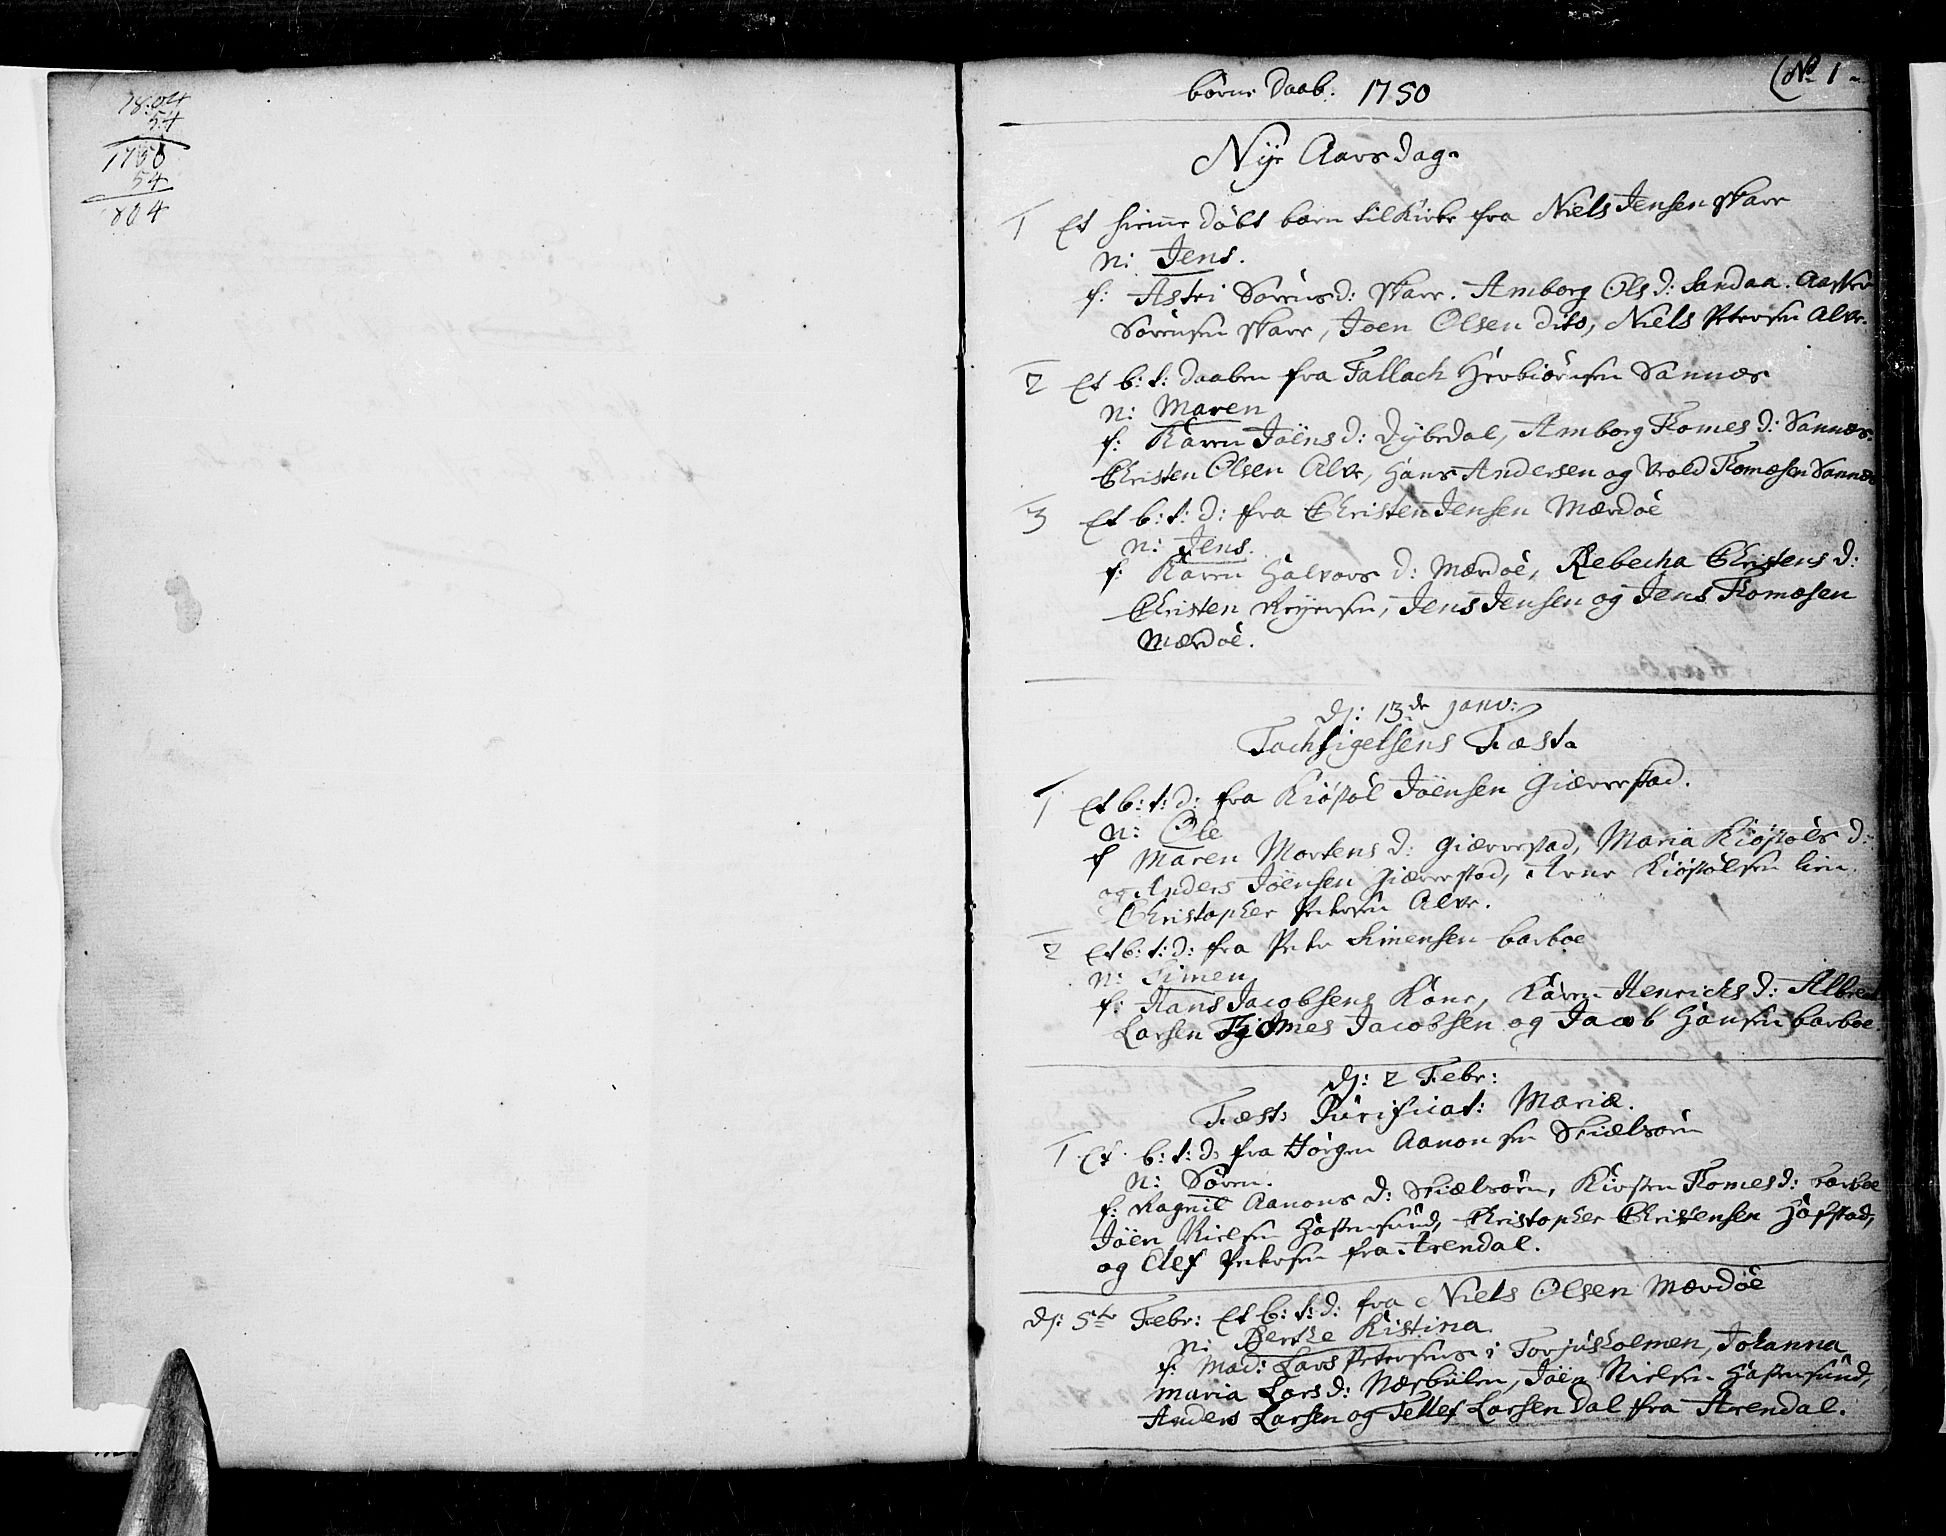 1804
54
1750
54
1804
(No 1
børne Daab. 1750
Nye Aars dag
1 Et hieme døbt barn til Kirke fra Niels Jensen skare
n: Jens.
f: Astri Sørens d: skare. Amborg Ols d: Sandaa.
Sørensen skare, Joen Olsen dito, Niels Petersen Alve.
2 Et b: t: daaben fra Tallach Herbiørnsen Sannæs
n: Maren
f: Karen Joens d: Dybedal, Amborg Thomes d: Sannæs.
Christen Olsen Alve, Hans Andersen og Thomesen Sannæs
3 Et b: t: d: fra Christen Jensen Mærdøe
n: Jens.
f: Karen Halvors d: Mærdøe, Rebecha Christens d:
Christen Reyersen, Jens Jensen og Jens Thomesen
Mærdøe.
D: 13de janv:
Tachsigelsens Fæst
1 Et b: t: d: fra Kiøstøl Joensen Giæverstad.
n: Ole
f Maren Mortens d: Giæverstad, Maria Kiøstøls d:
og Anders Joensen Giæverstad, Arne Kiøstølsen lien.
Christopher Petersen Alve.
2 Et b: t: d: fra Peter Simensen barboe
n: Simen
f: Hans Jacobsens Kone, Karen Henrichs d: Albrect
Larsen Jacobsen og Jacob Hansen barboe.
D: 2 Febr:
Fæst: Purificat: Mariæ.
1 Et b: t: d: fra Jørgen Aanonsen Skielsøen
n: Søren.
f: Ragnil Aanons d: Skielsøen, Kirsten Thomes d: barboe
Joen Nielsen Hastensund, Christopher Christensen Hafstad,
og Elef Petersen fra Arendal.
D: 5te Febr: Et b: t: d: fra Niels Olsen Mærdøe
n: Berthe Kistina
f: Mad: Lars Petersens i Torjusholmen, Johanna
Maria Lars d: Næsbulen, Joen Nielsen Hastensund,
Anders Larsen og Tellef Larsen Dal fra Arendal.